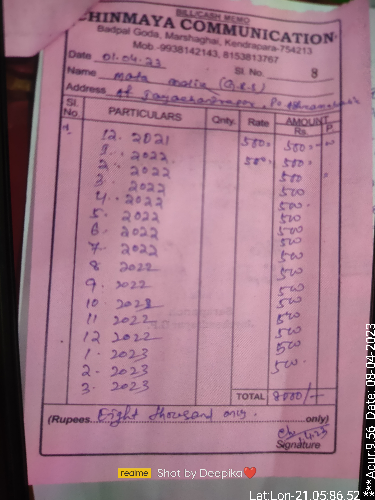 BILL/CASH MEMO
CHINMAYA COMMUNICATION
Badpal Goda, Marshaghai, Kendrapara-754213
Mob.-9938142143, 8153813767
Date 01.04.23 Sl. No. 8
Name Mata
Address At
Sl. No. PARTICULARS Qnty. Rate AMOUNT Rs. P.
1. 12. 2021 500 = 500 =
1. 2022 500 = 500 =
2. 2022 500
3. 2022 500
4. 2022 500
5. 2022 500
6. 2022 500
7. 2022 500
8 2022 500
9. 2022 500
10. 2022 500
11 2022 500
12 2022 500
1. 2023 500
2. 2023 500
3. 2023 500
TOTAL 8000/-
(Rupees Eight thousand only. only)
Signature
realme Shot by Deepika❤️
Lat:Lon-21.05:86.52
***Acur:9.56 Date: 08-04-2023